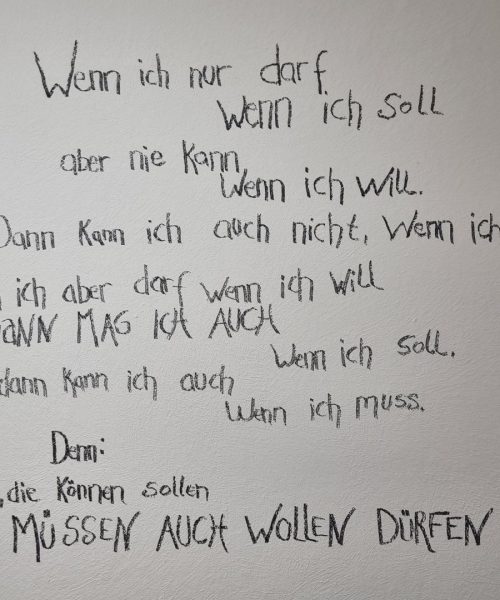 Wenn ich nur darf
Wenn ich soll
aber nie kann
Wenn ich will.
Dann kann ich auch nicht, Wenn ich
ich aber darf wenn ich will
aNN MAG ICH AUCH
Wenn ich soll.
dann kann ich auch
Wenn ich muss.
Denn:
die können sollen
MÜSSEN AUCH WOLLEN DÜRFEN